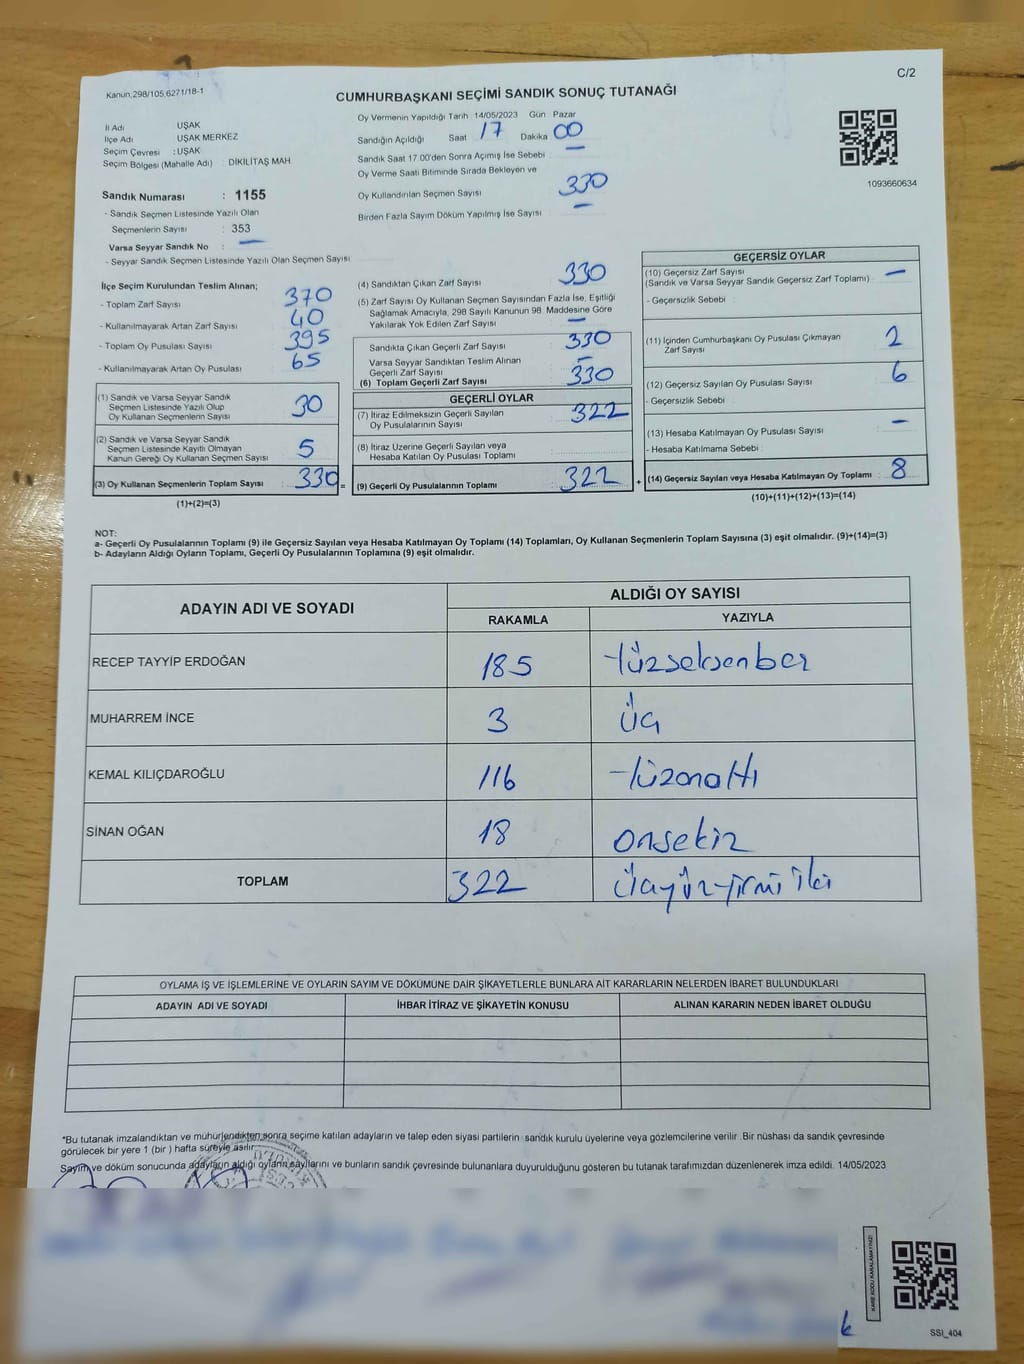 C/2
Kanun,298/105,6271/18-1
CUMHURBAŞKANI SEÇİMİ SANDIK SONUÇ TUTANAĞI
İl Adı UŞAK
İlçe Adı UŞAK MERKEZ
Seçim Çevresi : UŞAK
Seçim Bölgesi (Mahalle Adı) : DİKİLİTAŞ MAH
Sandık Numarası : 1155
- Sandık Seçmen Listesinde Yazılı Olan
Seçmenlerin Sayısı : 353
Varsa Seyyar Sandık No : —
- Seyyar Sandık Seçmen Listesinde Yazılı Olan Seçmen Sayısı
Oy Vermenin Yapıldığı Tarih :14/05/2023 Gün Pazar
Sandığın Açıldığı Saat 17 Dakika 00
Sandık Saat 17.00'den Sonra Açımış İse Sebebi : —
Oy Verme Saati Bitiminde Sırada Bekleyen ve
Oy Kullandırılan Seçmen Sayısı 330
Birden Fazla Sayım Döküm Yapılmış İse Sayısı —
1093660634
İlçe Seçim Kurulundan Teslim Alınan;
- Toplam Zarf Sayısı 370
- Kullanılmayarak Artan Zarf Sayısı 40
- Toplam Oy Pusulası Sayısı 395
- Kullanılmayarak Artan Oy Pusulası 65
(1) Sandık ve Varsa Seyyar Sandık
Seçmen Listesinde Yazılı Olup
Oy Kullanan Seçmenlerin Sayısı 30
(2) Sandık ve Varsa Seyyar Sandık
Seçmen Listesinde Kayıtlı Olmayan
Kanun Gereği Oy Kullanan Seçmen Sayısı 5
(3) Oy Kullanan Seçmenlerin Toplam Sayısı 330 =
(1)+(2)=(3)
(4) Sandıktan Çıkan Zarf Sayısı 330
(5) Zarf Sayısı Oy Kullanan Seçmen Sayısından Fazla İse, Eşitliği
Sağlamak Amacıyla, 298 Sayılı Kanunun 98. Maddesine Göre
Yakılarak Yok Edilen Zarf Sayısı —
Sandıkta Çıkan Geçerli Zarf Sayısı 330
Varsa Seyyar Sandıktan Teslim Alınan
Geçerli Zarf Sayısı —
(6) Toplam Geçerli Zarf Sayısı 330
GEÇERLİ OYLAR
(7) İtiraz Edilmeksizin Geçerli Sayılan
Oy Pusulalarının Sayısı 322
(8) İtiraz Üzerine Geçerli Sayılan veya
Hesaba Katılan Oy Pusulası Toplamı
(9) Geçerli Oy Pusulalarının Toplamı 322 +
GEÇERSİZ OYLAR
(10) Geçersiz Zarf Sayısı —
(Sandık ve Varsa Seyyar Sandık Geçersiz Zarf Toplamı)
- Geçersizlik Sebebi :
(11) İçinden Cumhurbaşkanı Oy Pusulası Çıkmayan
Zarf Sayısı 2
(12) Geçersiz Sayılan Oy Pusulası Sayısı 6
- Geçersizlik Sebebi :
(13) Hesaba Katılmayan Oy Pusulası Sayısı —
- Hesaba Katılmama Sebebi :
(14) Geçersiz Sayılan veya Hesaba Katılmayan Oy Toplamı 8
(10)+(11)+(12)+(13)=(14)
NOT:
a- Geçerli Oy Pusulalarının Toplamı (9) ile Geçersiz Sayılan veya Hesaba Katılmayan Oy Toplamı (14) Toplamları, Oy Kullanan Seçmenlerin Toplam Sayısına (3) eşit olmalıdır. (9)+(14)=(3)
b- Adayların Aldığı Oyların Toplamı, Geçerli Oy Pusulalarının Toplamına (9) eşit olmalıdır.
ADAYIN ADI VE SOYADI ALDIĞI OY SAYISI
RAKAMLA YAZIYLA
RECEP TAYYİP ERDOĞAN 185 Yüzseksenbeş
MUHARREM İNCE 3 Üç
KEMAL KILIÇDAROĞLU 116 Yüzonaltı
SİNAN OĞAN 18 onsekiz
TOPLAM 322 Üçyüzyirmi iki
OYLAMA İŞ VE İŞLEMLERİNE VE OYLARIN SAYIM VE DÖKÜMÜNE DAİR ŞİKAYETLERLE BUNLARA AİT KARARLARIN NELERDEN İBARET BULUNDUKLARI
ADAYIN ADI VE SOYADI İHBAR İTİRAZ VE ŞİKAYETİN KONUSU ALINAN KARARIN NEDEN İBARET OLDUĞU
*Bu tutanak imzalandıktan ve mühürlendikten sonra seçime katılan adayların ve talep eden siyasi partilerin sandık kurulu üyelerine veya gözlemcilerine verilir .Bir nüshası da sandık çevresinde
görülecek bir yere 1 (bir ) hafta süreyle asılır.
Sayım ve döküm sonucunda adayların aldığı oyların sayılarını ve bunların sandık çevresinde bulunanlara duyurulduğunu gösteren bu tutanak tarafımızdan düzenlenerek imza edildi. 14/05/2023
KARE KODU KARALAMAYINIZ!
SSI_404